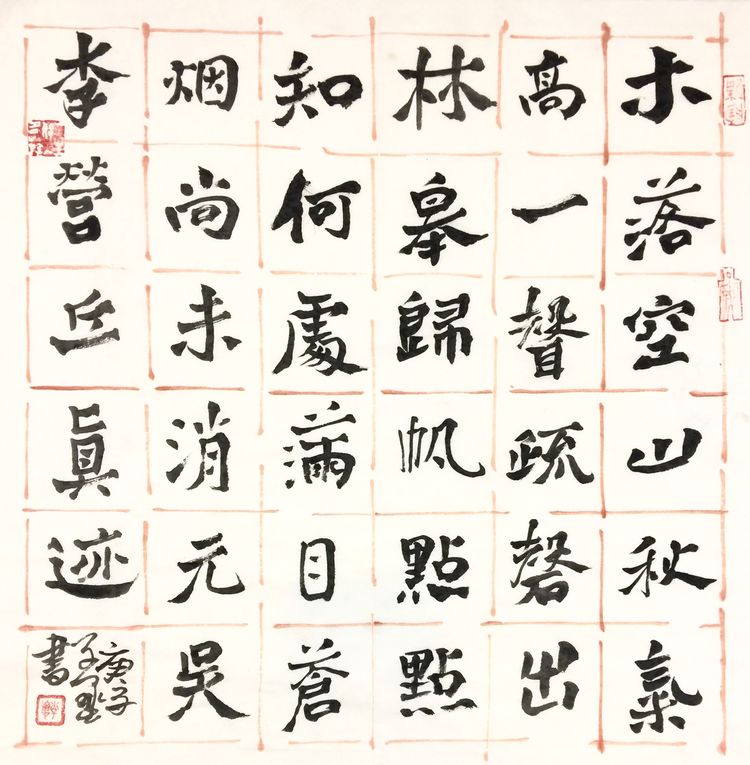 木落空山秋氣
高一聲疏磬出
林皋歸帆點點
知何處滿目蒼
烟尚未消元吳
李營丘眞迹
庚子
書